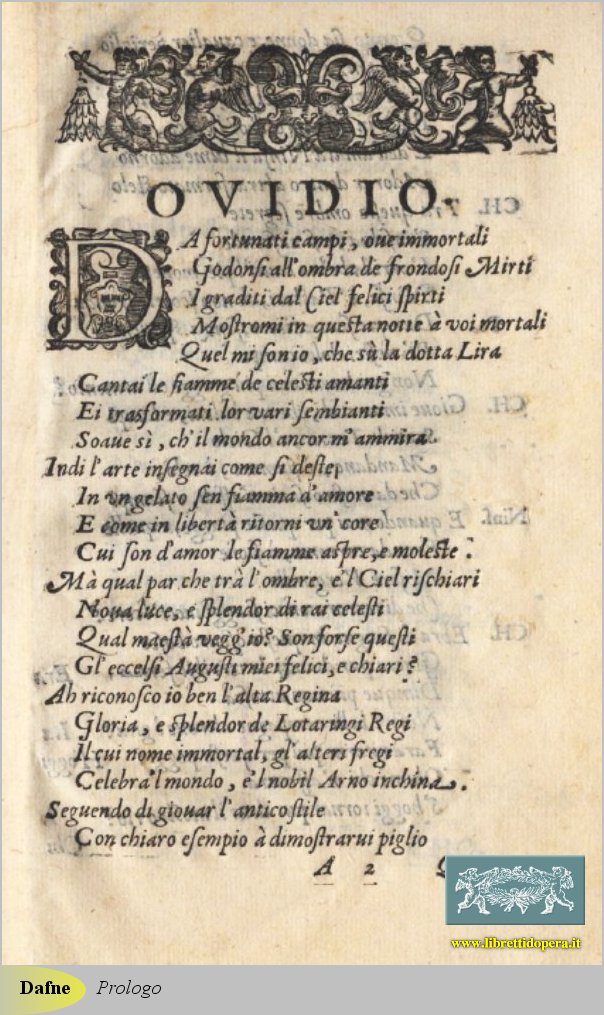 OVIDIO.
DA fortunati campi, oue immortali
Godonsi all'ombra de frondosi Mirti
I graditi dal Ciel felici spirti
Mostromi in questa notte à voi mortali
Quel mi son io, che sù la dotta Lira
Cantai le fiamme de celesti amanti
Ei trasformati lor vari sembianti
Soaue sì, ch'il mondo ancor m'ammira.
Indi l'arte insegnai come si deste
In vn gelato sen fiamma d'amore
E come in libertà ritorni vn' core
Cui son d'amor le fiamme aspre, e moleste.
Mà qual par che trà l'ombre, e'l Ciel rischiari
Noua luce, e splendor di rai celesti
Qual maestà vegg'io? Son forse questi
Gl'eccelsi Augusti miei felici, e chiari?
Ah riconosco io ben l'alta Regina
Gloria, e splendor de Lotaringi Regi
Il cui nome immortal, gl'alteri fregi
Celebra'l mondo, e'l nobil Arno inchina.
Seguendo di giouar l'antico stile
Con chiaro esempio à dimostrarui piglio
A 2
www.librettidopera.it
Dafne Prologo